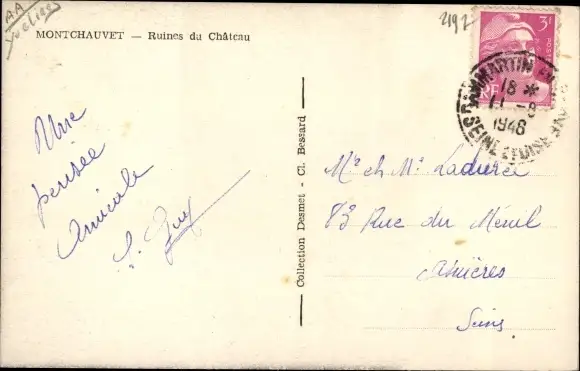 AA
Yvelines
2197
MONTCHAUVET — Ruines du Château
3F
POSTES
RF
DAMMARTIN
18 *
11 - 8
1946
SEINE ET OISE
Une
pensée
Amicale
Collection Desmet - Cl. Bessard
Mr et Me Ladurée
83 Rue du Ménil
Asnières
Seine